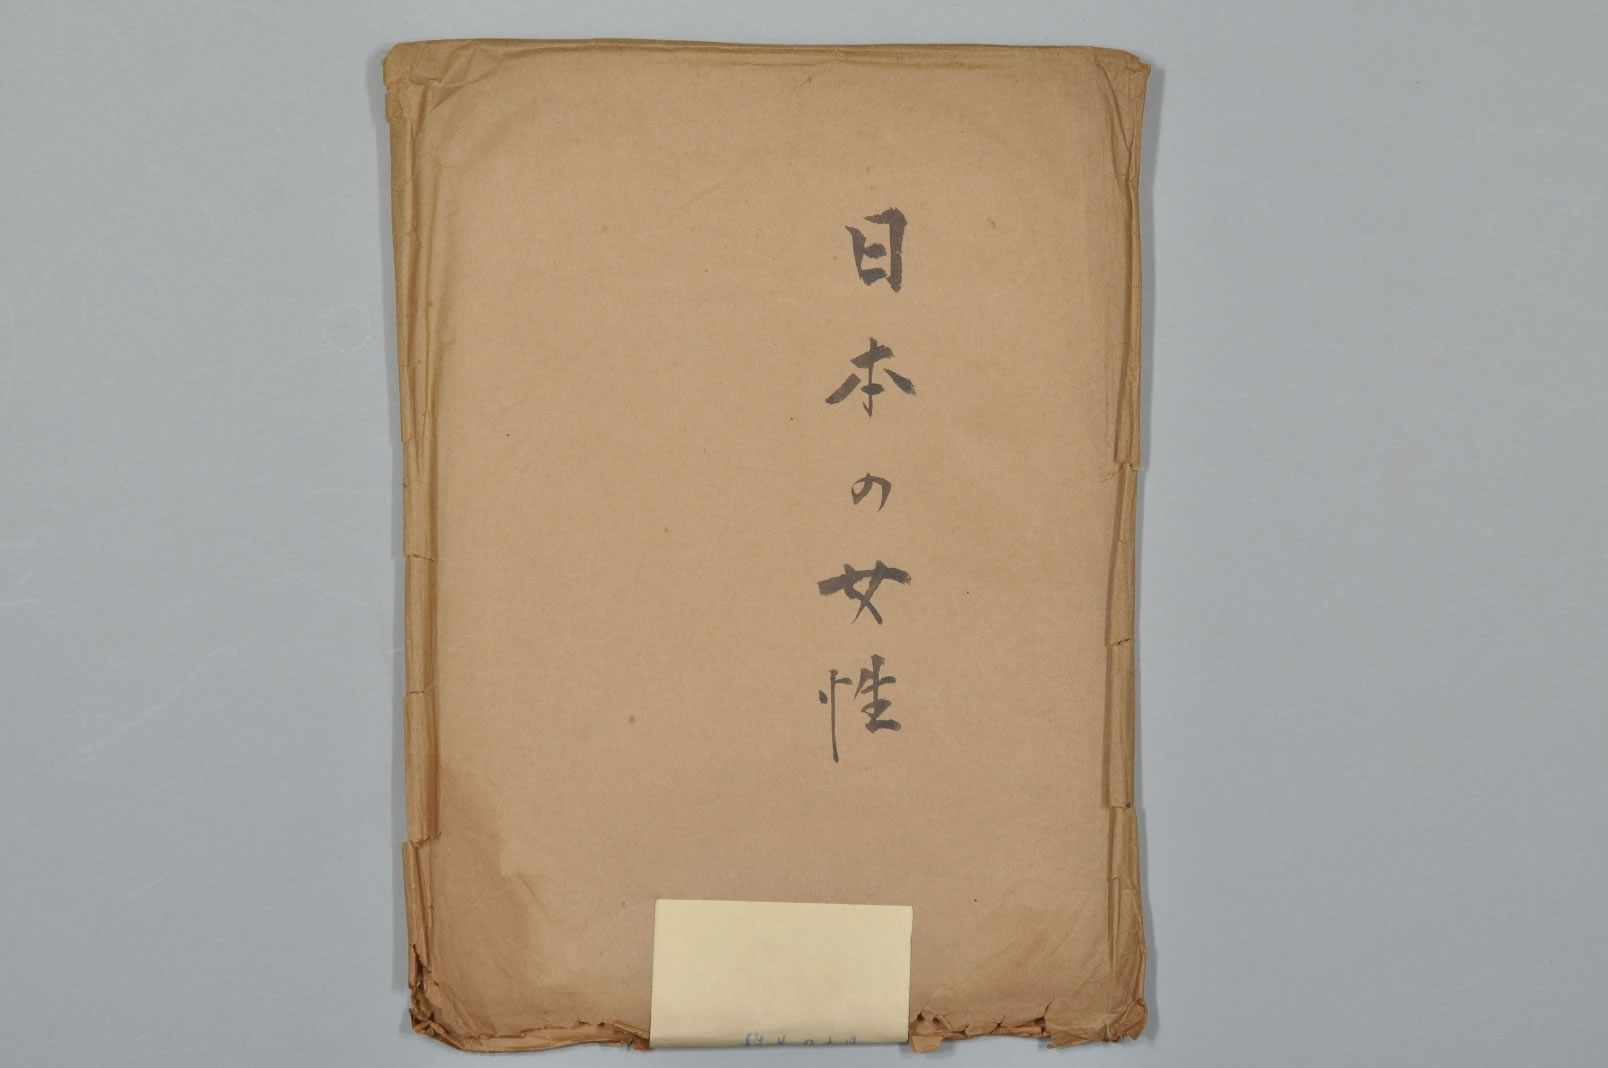 日本の女性